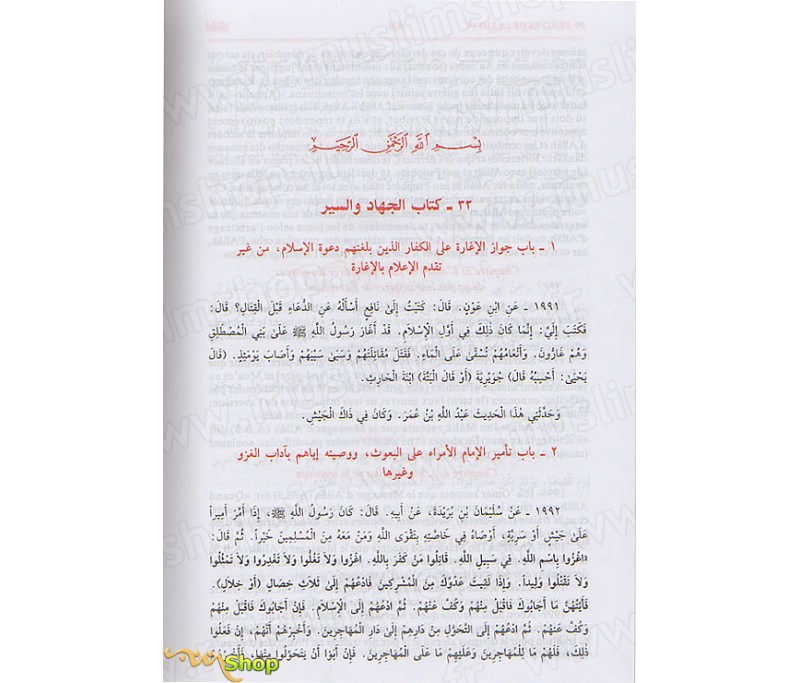 بِسْمِ اللَّهِ الرَّحْمَنِ الرَّحِيمِ
٣٢ ـ كتاب الجهاد والسير
١ ـ باب جواز الإغارة على الكفار الذين بلغتهم دعوة الإسلام، من غير
تقدم الإعلام بالإغارة
١٩٩١ ـ عَنِ ابْنِ عَوْنٍ. قَالَ: كَتَبْتُ إِلَىٰ نَافِعٍ أَسْأَلُهُ عَنِ الدُّعَاءِ قَبْلَ الْقِتَالِ؟ قَالَ:
فَكَتَبَ إِلَيَّ: إِنَّمَا كَانَ ذٰلِكَ فِي أَوَّلِ الْإِسْلَامِ. قَدْ أَغَارَ رَسُولُ اللَّهِ ﷺ عَلَىٰ بَنِي الْمُصْطَلِقِ
وَهُمْ غَارُّونَ. وَأَنْعَامُهُمْ تُسْقَىٰ عَلَى الْمَاءِ. فَقَتَلَ مُقَاتِلَتَهُمْ وَسَبَىٰ سَبْيَهُمْ وَأَصَابَ يَوْمَئِذٍ. (قَالَ
يَحْيَىٰ: أَحْسِبُهُ قَالَ) جُوَيْرِيَةَ (أَوْ قَالَ الْبَتَّةَ) ابْنَةَ الْحَارِثِ.
وَحَدَّثَنِي هٰذَا الْحَدِيثَ عَبْدُ اللَّهِ بْنُ عُمَرَ. وَكَانَ فِي ذَاكَ الْجَيْشِ.
٢ ـ باب تأمير الإمام الأمراء على البعوث، ووصيته إياهم بآداب الغزو
وغيرها
١٩٩٢ ـ عَنْ سُلَيْمَانَ بْنِ بُرَيْدَةَ، عَنْ أَبِيهِ. قَالَ: كَانَ رَسُولُ اللَّهِ ﷺ، إِذَا أَمَّرَ أَمِيراً
عَلَىٰ جَيْشٍ أَوْ سَرِيَّةٍ، أَوْصَاهُ فِي خَاصَّتِهِ بِتَقْوَى اللَّهِ وَمَنْ مَعَهُ مِنَ الْمُسْلِمِينَ خَيْراً. ثُمَّ قَالَ:
«اغْزُوا بِاسْمِ اللَّهِ. فِي سَبِيلِ اللَّهِ. قَاتِلُوا مَنْ كَفَرَ بِاللَّهِ. اغْزُوا وَلاَ تَغُلُّوا وَلاَ تَغْدِرُوا وَلاَ تَمْثُلُوا
وَلاَ تَقْتُلُوا وَلِيداً. وَإِذَا لَقِيتَ عَدُوَّكَ مِنَ الْمُشْرِكِينَ فَادْعُهُمْ إِلَىٰ ثَلاَثِ خِصَالٍ (أَوْ خِلاَلٍ).
فَأَيَّتُهُنَّ مَا أَجَابُوكَ فَاقْبَلْ مِنْهُمْ وَكُفَّ عَنْهُمْ. ثُمَّ ادْعُهُمْ إِلَى الْإِسْلاَمِ. فَإِنْ أَجَابُوكَ فَاقْبَلْ مِنْهُمْ
وَكُفَّ عَنْهُمْ. ثُمَّ ادْعُهُمْ إِلَى التَّحَوُّلِ مِنْ دَارِهِمْ إِلَىٰ دَارِ الْمُهَاجِرِينَ. وَأَخْبِرْهُمْ أَنَّهُمْ، إِنْ فَعَلُوا
ذٰلِكَ، فَلَهُمْ مَا لِلْمُهَاجِرِينَ وَعَلَيْهِمْ مَا عَلَى الْمُهَاجِرِينَ. فَإِنْ أَبَوْا أَنْ يَتَحَوَّلُوا مِنْهَا، فَأَخْبِرْهُمْ
Shop